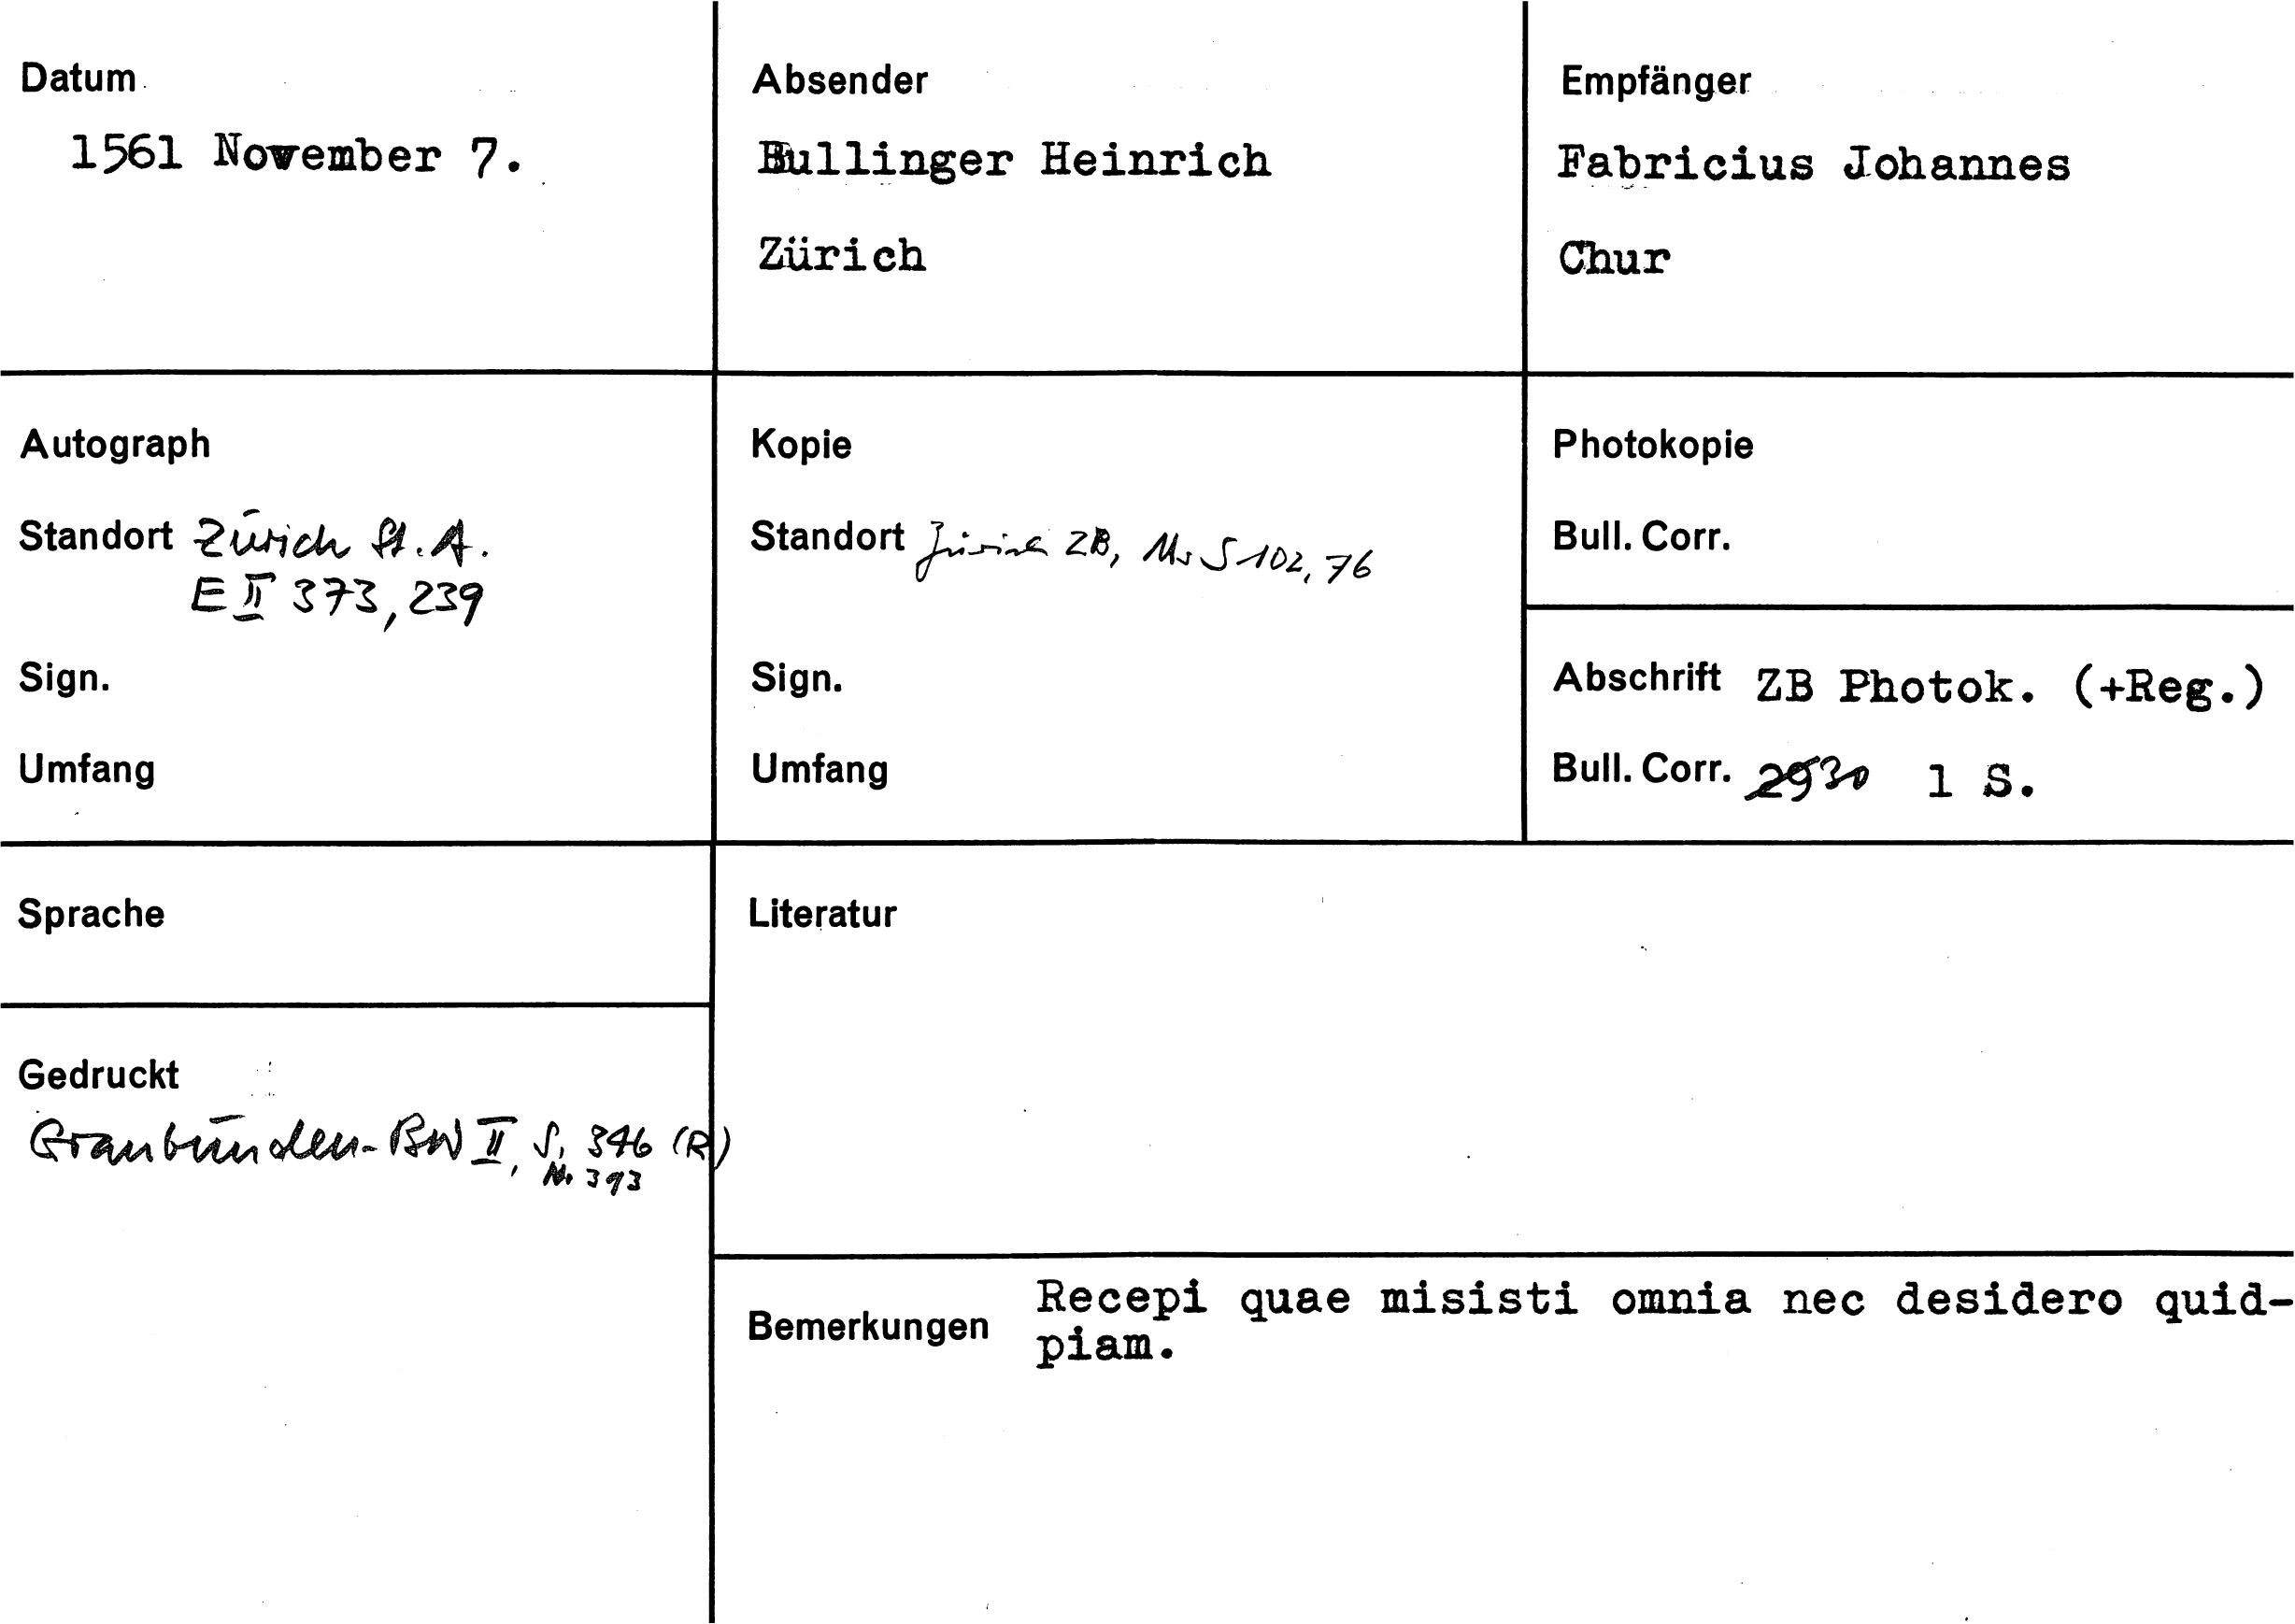 Datum
1561 November 7.
Absender
Bullinger Heinrich
Zürich
Empfänger
Fabricius Johannes
Chur
Autograph
Standort Zürich St.A.
E II 373, 239
Sign.
Umfang
Kopie
Standort Zürich ZB, Ms S 102, 76
Sign.
Umfang
Photokopie
Bull. Corr.
Abschrift ZB Photok. (+Reg.)
Bull. Corr. 2930 1 S.
Sprache
Literatur
Gedruckt
Graubünden-BW II, S. 346 (R)
Nr 393
Bemerkungen Recepi quae misisti omnia nec desidero quid-
piam.